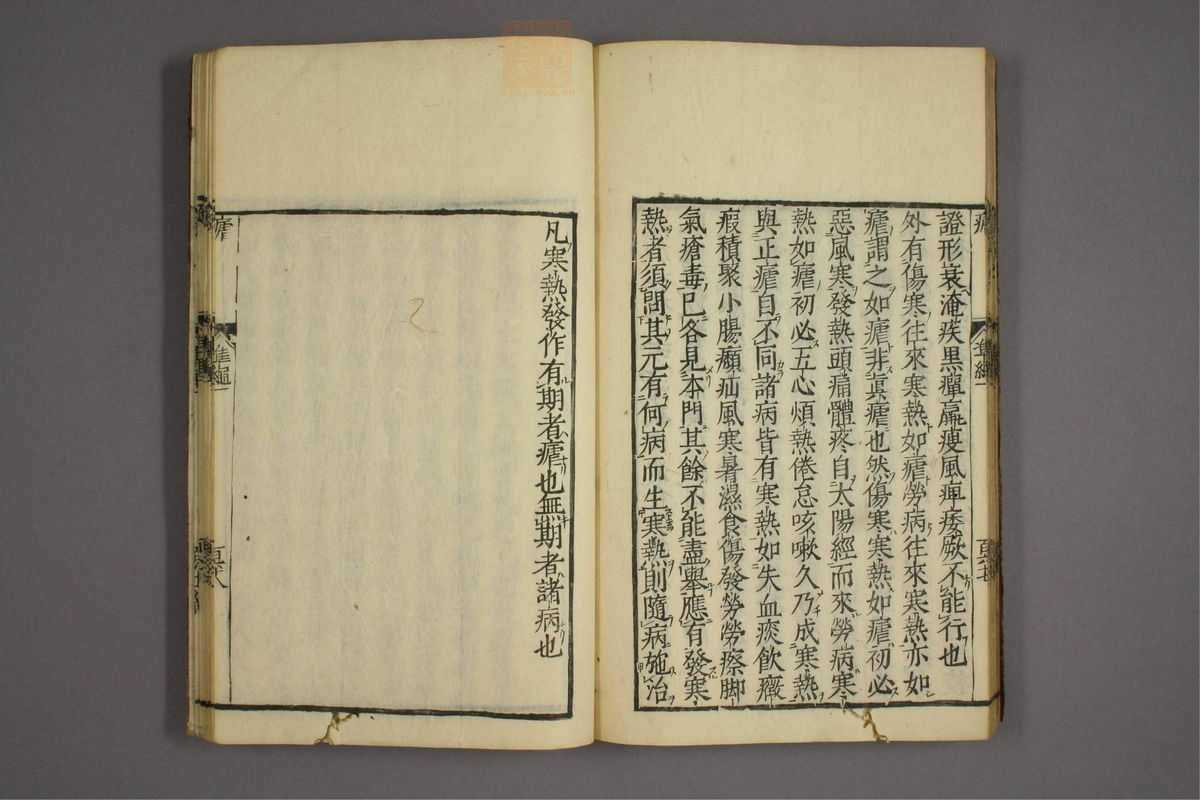 證形衰淹疾黒癉羸瘦風痺痿厥不能行也
外有傷寒往來寒熱如瘧勞病往來寒熱亦如
瘧謂之如瘧非真瘧也然傷寒寒熱如瘧初必
惡風寒發熱頭痛體疼自太陽經而來勞病寒
熱如瘧初必五心煩熱倦怠咳嗽久乃成寒熱
與正瘧自不同諸病皆有寒熱如失血痰飲癥
瘕積聚小腸㿗疝風寒暑濕食傷發勞勞瘵脚
氣瘡毒已各見本門其餘不能盡舉應有發寒
熱者須問其元有何病而生寒熱則隨病施治
凡寒熱發作有期者瘧也無期者諸病也
瘧
準繩一